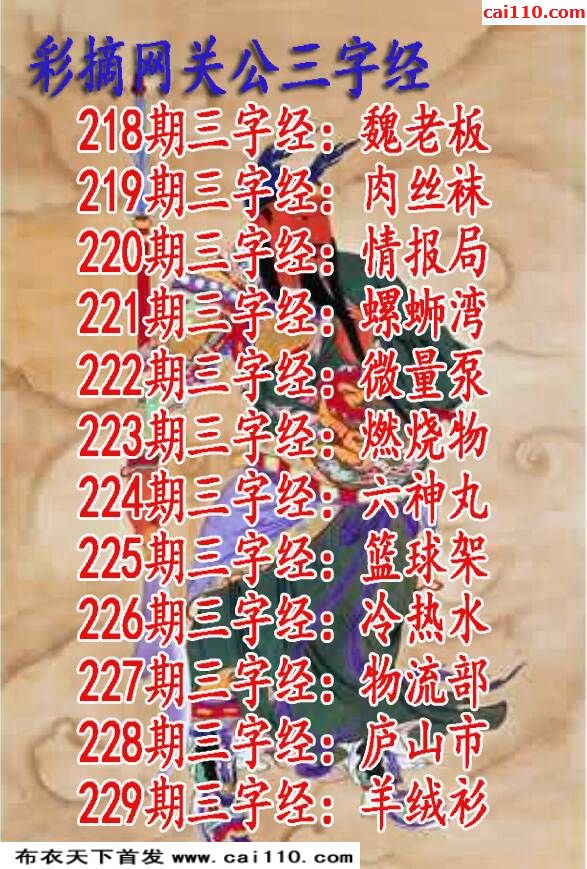 cai110.com
彩摘网关公三字经
218期三字经：魏老板
219期三字经：肉丝袜
220期三字经：情报局
221期三字经：螺蛳湾
222期三字经：微量泵
223期三字经：燃烧物
224期三字经：六神丸
225期三字经：篮球架
226期三字经：冷热水
227期三字经：物流部
228期三字经：庐山市
229期三字经：羊绒衫
布衣天下首发 www.cai110.com